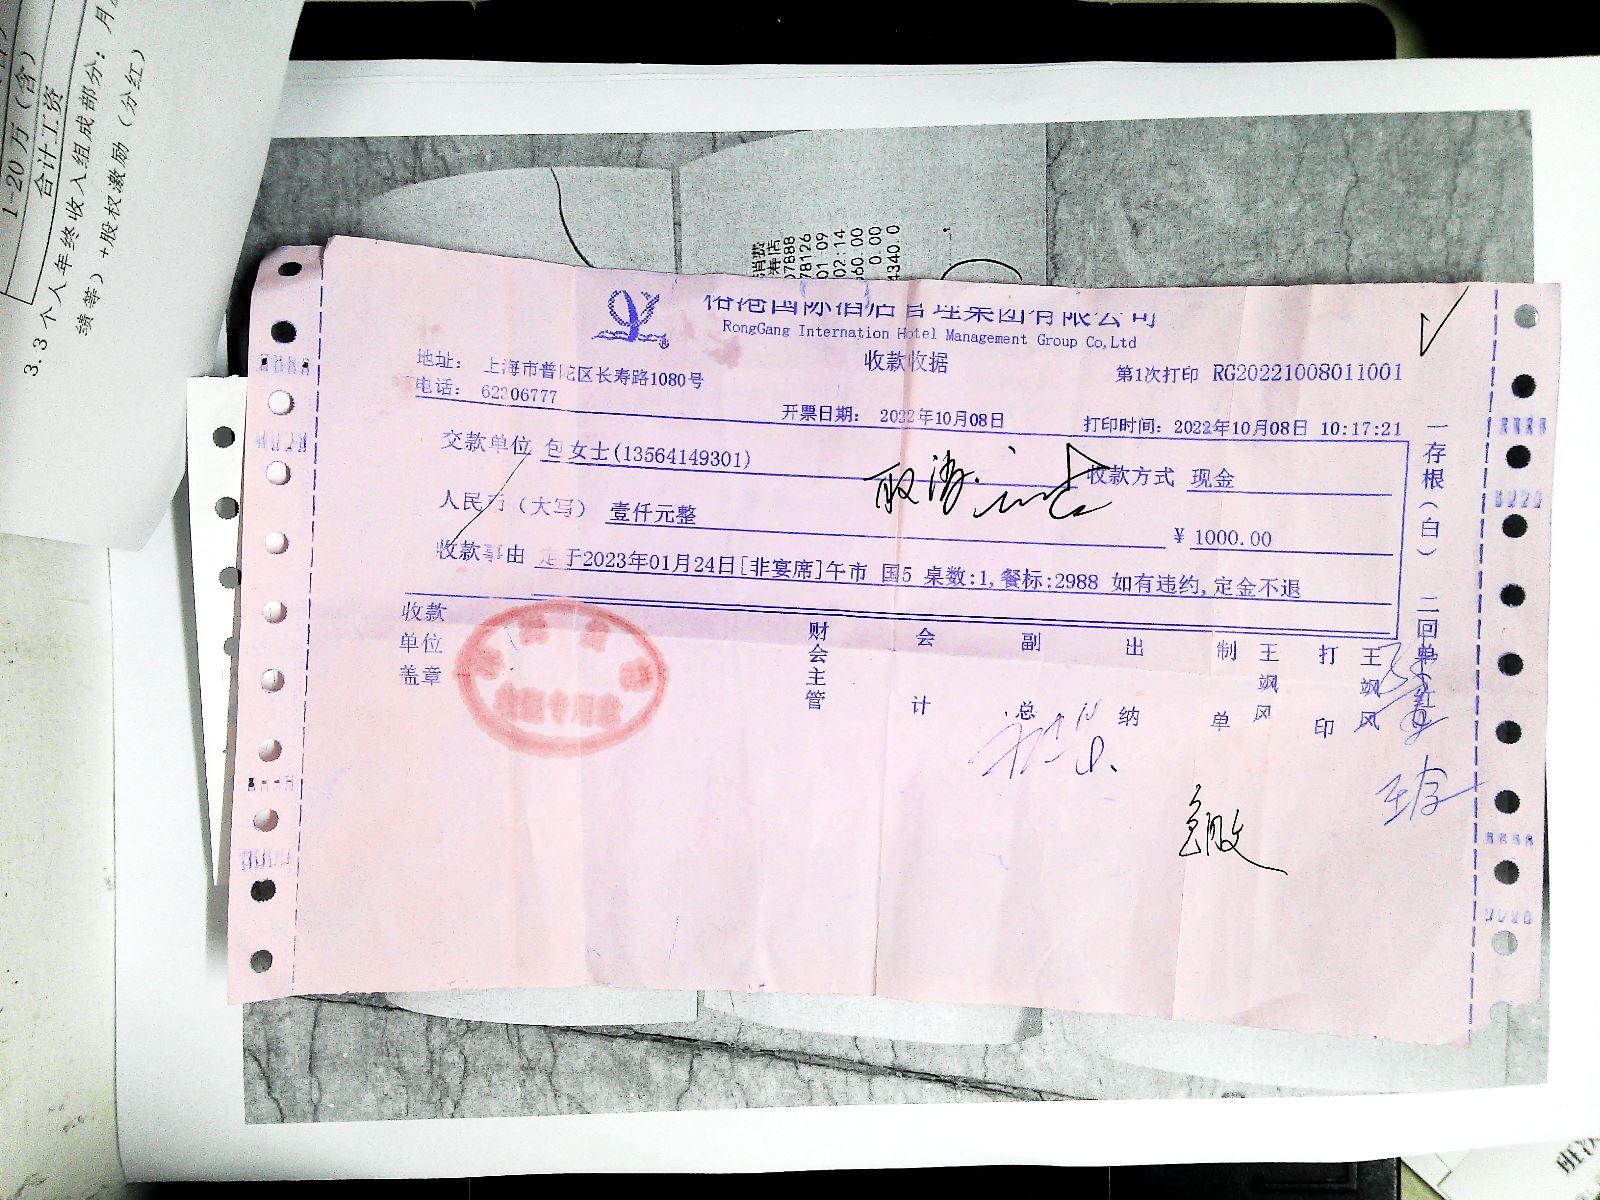 1-20万(含)
合计工资
3.3 个人年终收入组成部分：月
绩等）+股权激励（分红）
07888
78126
01 09
02:14
960.00
0.00
4340.0
国际酒店管理集团有限公司
RongGang Internation Hotel Management Group Co,Ltd
收款收据
地址： 上海市普陀区长寿路1080号
第1次打印 RG20221008011001
电话： 62306777
开票日期： 2022年10月08日
打印时间：2022年10月08日 10:17:21
交款单位 包女士(13564149301)
取消
收款方式 现金
人民币（大写） 壹仟元整
¥ 1000.00
收款事由 定于2023年01月24日[非宴席]午市 国5 桌数:1,餐标:2988 如有违约,定金不退
一存根（白） 二回单（红）
收款单位盖章
财会主管
会计
副总
出纳
制单
王飒风
打印
王飒风